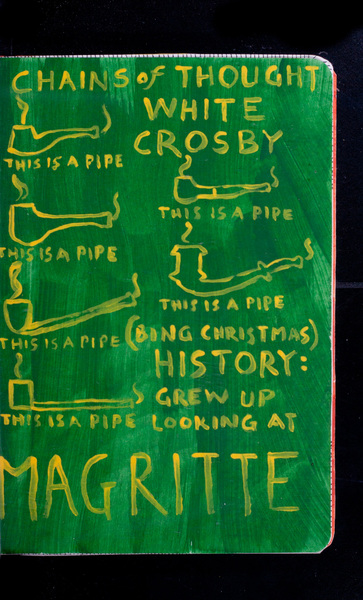 CHAINS of THOUGHT
WHITE
CROSBY
THIS IS A PIPE
THIS IS A PIPE
THIS IS A PIPE
THIS IS A PIPE
THIS IS A PIPE
(BING CHRISTMAS)
HISTORY:
GREW UP
THIS IS A PIPE
LOOKING AT
MAGRITTE